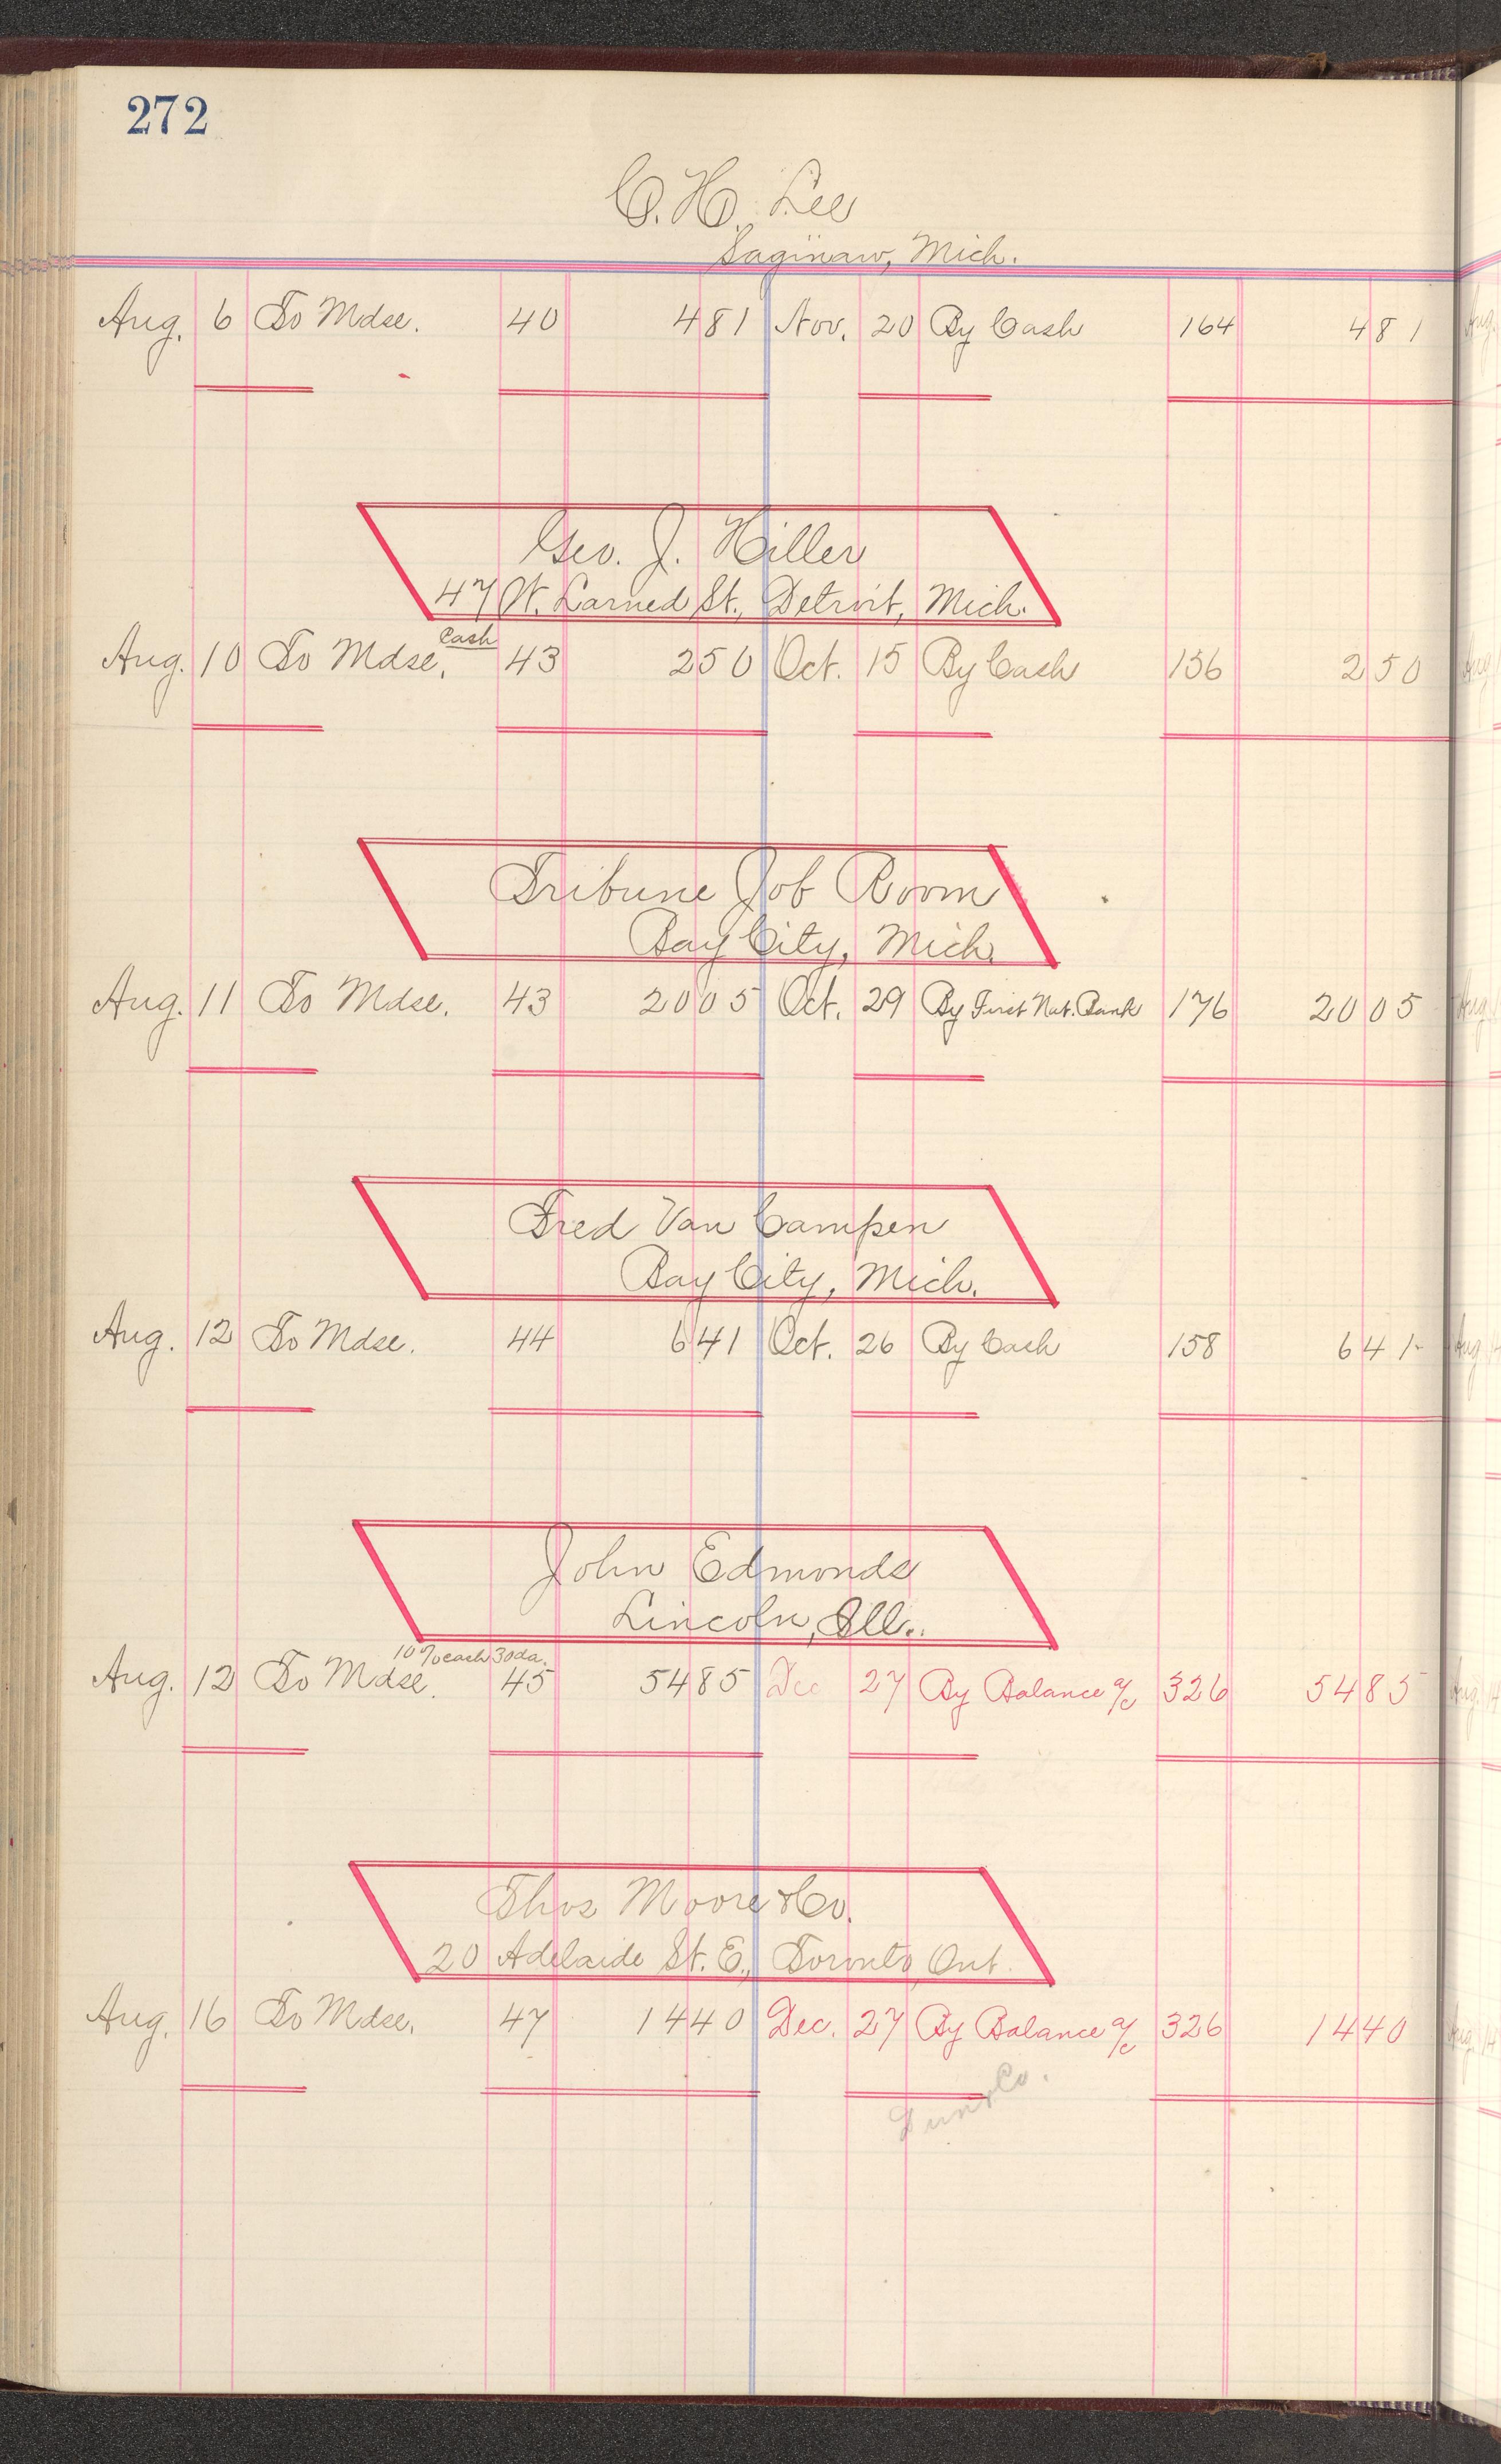 272
C. H. Lee
Saginaw, Mich.
Aug. 6 To Mdse. 40 481 Nov. 20 By Cash 164 481
Geo. J. Hiller
47 W. Larned St., Detroit, Mich.
Cash
Aug. 10 To Mdse. 43 250 Oct. 15 By Cash 156 250
Tribune Job Room
Bay City, Mich.
Aug. 11 To Mdse. 43 2005 Oct. 29 By First Nat. Bank 176 2005
Fred Van Campen
Bay City, Mich.
Aug. 12 To Mdse. 44 641 Oct. 26 By Cash 158 641
John Edmonds
Lincoln, Ill.
10% each 30 da.
Aug. 12 To Mdse. 45 5485 Dec 27 By Balance a/c 326 5485
Thos Moore & Co.
20 Adelaide St. E., Toronto, Ont.
Aug. 16 To Mdse. 47 1440 Dec. 27 By Balance a/c 326 1440